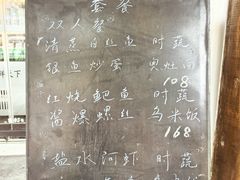 套餐
"双人餐"
清蒸白红鱼 时蔬
银鱼炒蛋 貝灶面
108
红烧鲃鱼 时蔬
酱爆螺丝 乌米饭
168
盐水河虾 时蔬
下